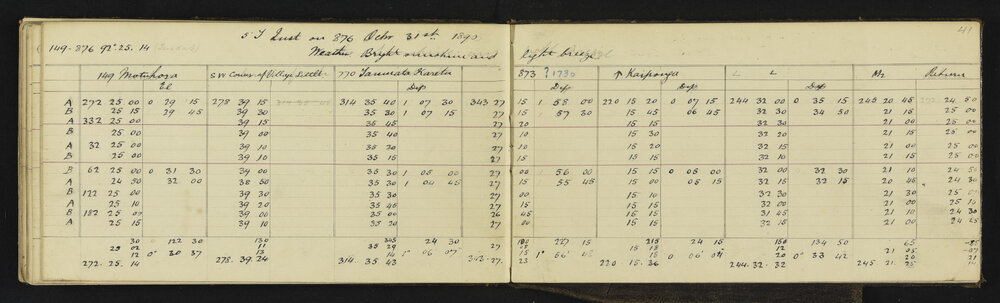 41
5" T Inst on 876 Octr 31st 1890
149-876 92°.25.14
Weather Bright sunshine and light breeze
149 Motuhora S W Corner of Village Settlt 770 Tanumata Kareta 873 1730 Kaiponga L L Return
El Dep Dep Dep Dep
A 272 25 00 0 29 15 278 39 15 314 35 40 1 07 30 343 27 15 1 58 00 220 15 20 0 07 15 244 32 00 0 35 15 245 20 45 24 50
B 25 00 29 45 39 30 35 30 1 07 15 27 15 57 30 15 45 06 45 32 30 34 50 21 15 25 00
A 332 25 00 39 15 35 45 27 20 15 15 32 30 21 00 25 00
B 25 00 39 00 35 40 27 10 15 30 32 20 21 15 25 00
A 32 25 00 39 10 35 20 27 10 15 20 32 15 21 00 25 00
B 25 00 39 10 35 15 27 15 15 15 32 10 21 15 25 00
B 62 25 00 0 31 30 39 00 35 30 1 05 00 27 00 1 56 00 15 15 0 05 00 32 00 32 30 21 10 24 50
A 24 50 32 00 38 50 35 30 1 04 45 27 15 55 45 15 00 05 15 32 15 32 15 20 45 24 30
B 122 25 00 39 30 35 30 27 00 15 15 32 30 21 30 25 00
A 25 10 39 20 35 30 27 20 15 15 32 00 21 00 25 10
B 182 25 00 39 00 35 00 26 45 15 15 31 45 21 10 24 30
A 25 15 39 10 35 20 27 00 15 15 32 15 21 00 24 50
30 0 122 30 130 305 24 30 100 227 15 215 24 15 150 134 50 65
25 02 11 35 29 27 15 18 12 21 05
12 0° 30 37 13 14 1° 06 07 15 1° 56 48 18 0 06 04 20 0° 33 42 20 21
272.25.14 278.39.24 314.35.43 343.27.23 220.15.36 244.32.32 245.21.25 14